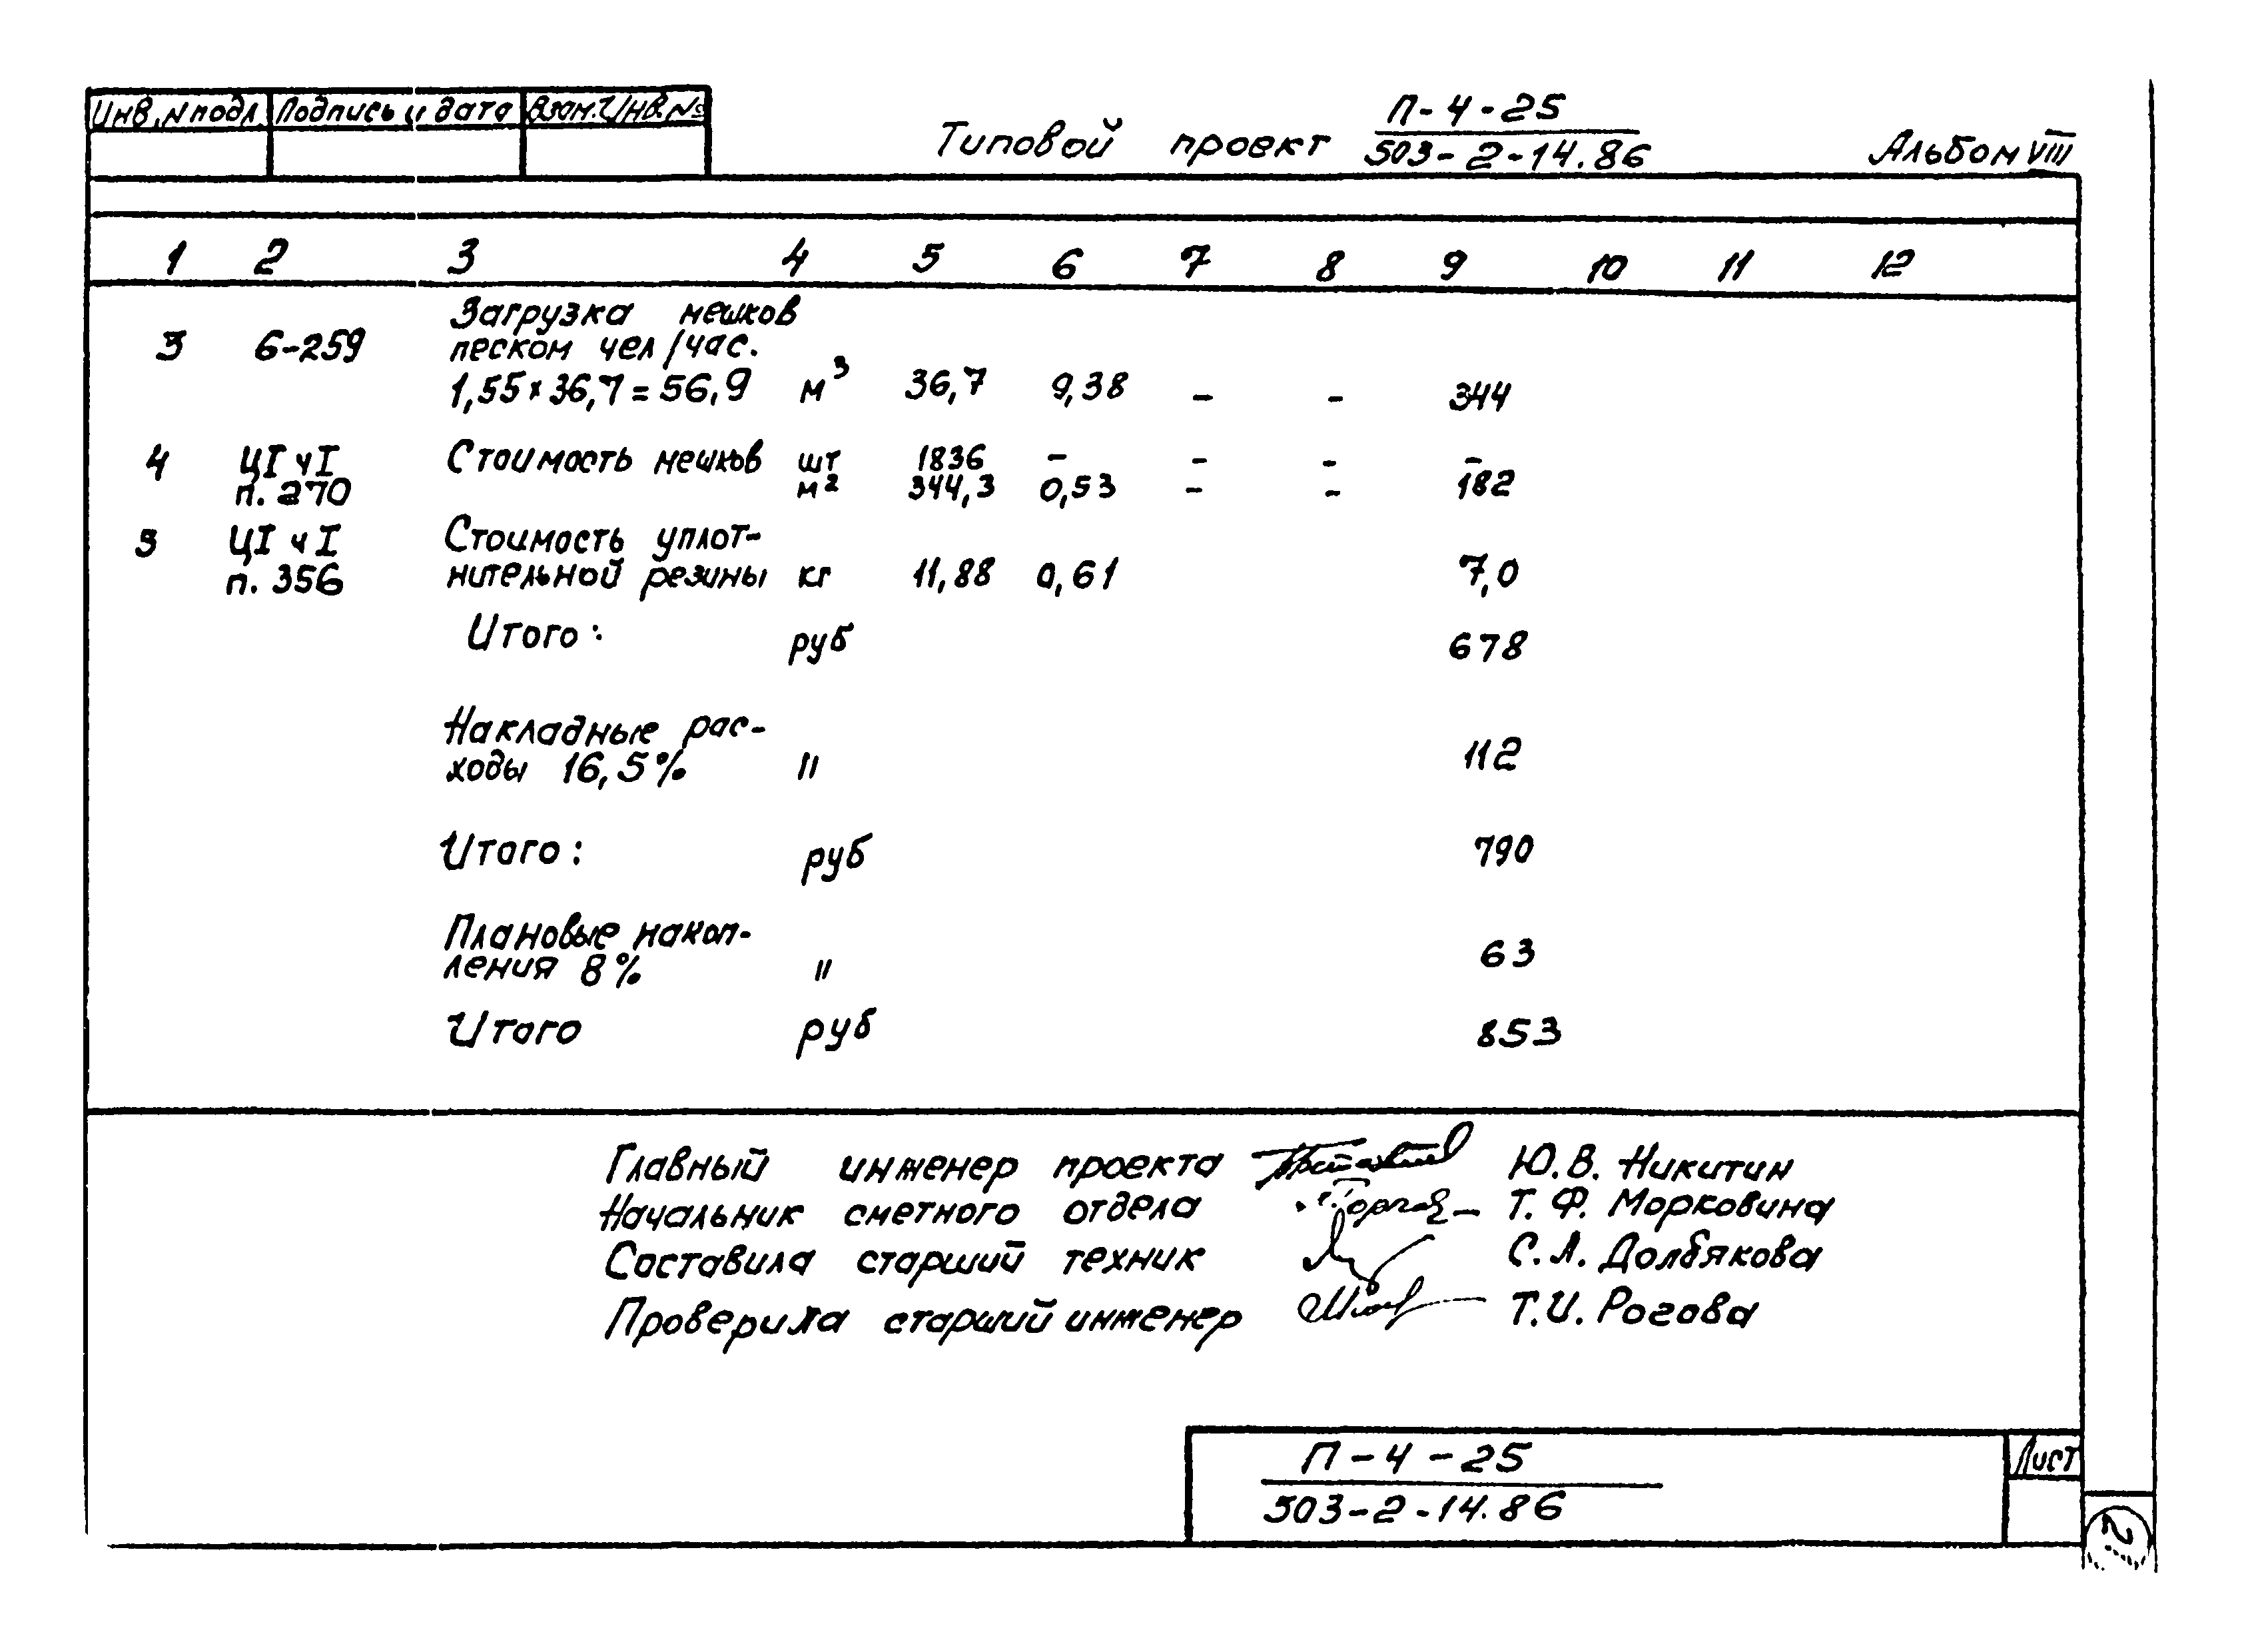 Инв. N подл. Подпись и дата Взам. Инв. №
Типовой проект П-4-25
503-2-14.86
Альбом VIII
1 2 3 4 5 6 7 8 9 10 11 12
Загрузка мешков
3 6-259 песком чел/час.
1,55×36,7=56,9 м³ 36,7 9,38 - - 344
4 ЦI чI Стоимость мешков шт 1836 - - - -
п. 270 м² 344,3 0,53 - - 182
5 ЦI чI Стоимость уплот-
п. 356 нительной резины кг 11,88 0,61 7,0
Итого: руб 678
Накладные рас-
ходы 16,5% " 112
Итого: руб 790
Плановые накоп-
ления 8% " 63
Итого руб 853
Главный инженер проекта Ю.В. Никитин
Начальник сметного отдела Т.Ф. Морковина
Составила старший техник С.А. Долбякова
Проверила старший инженер Т.И. Рогова
П-4-25
503-2-14.86
Лист